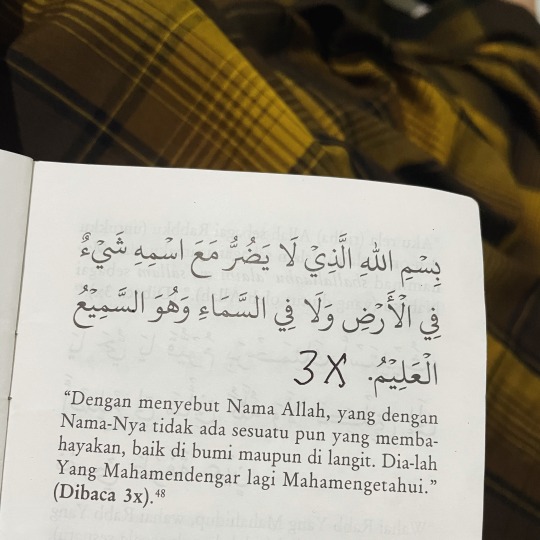 بِسْمِ اللهِ الَّذِيْ لَا يَضُرُّ مَعَ اسْمِهِ شَيْءٌ
فِي الْأَرْضِ وَلَا فِي السَّمَاءِ وَهُوَ السَّمِيْعُ
الْعَلِيْمُ. 3X
“Dengan menyebut Nama Allah, yang dengan
Nama-Nya tidak ada sesuatu pun yang memba-
hayakan, baik di bumi maupun di langit. Dia-lah
Yang Mahamendengar lagi Mahamengetahui.”
(Dibaca 3x).⁴⁸